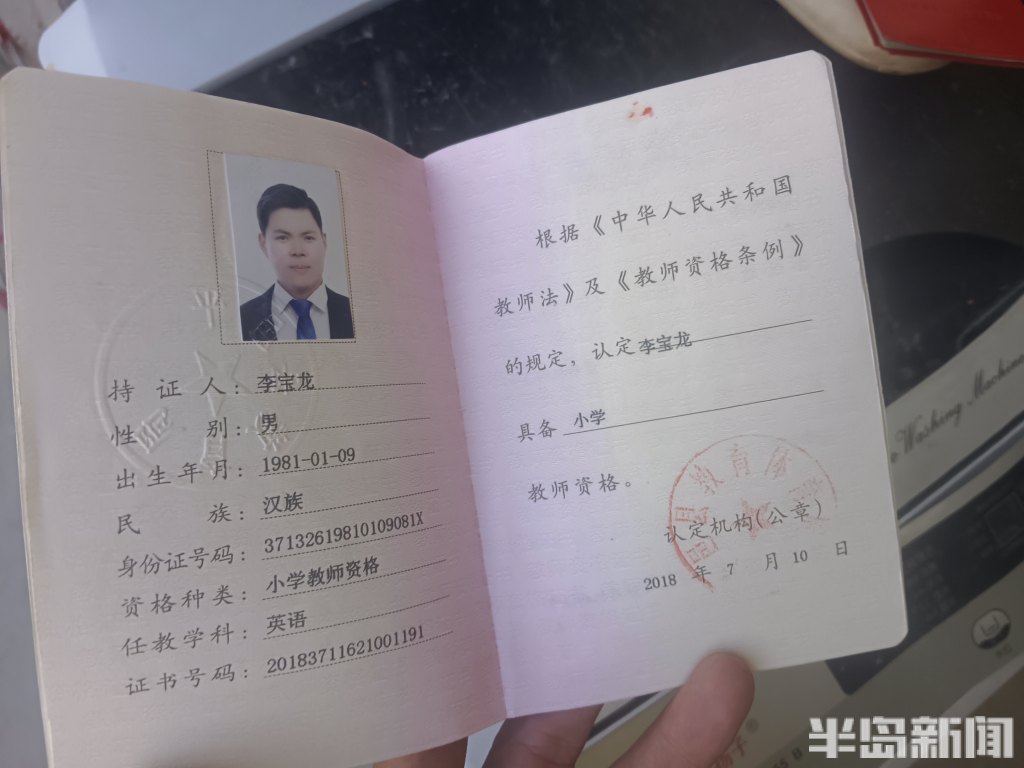 持证人：李宝龙
性别：男
出生年月：1981-01-09
民族：汉族
身份证号码：37132619810109081X
资格种类：小学教师资格
任教学科：英语
证书号码：20183711621001191
根据《中华人民共和国
教师法》及《教师资格条例》
的规定，认定李宝龙
具备 小学
教师资格。
教育局
认定机构(公章)
2018 年 7 月 10 日
Washing Machine
半岛新闻